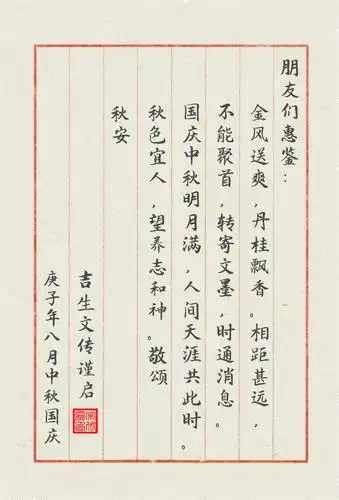 朋友们惠鉴：
金风送爽，丹桂飘香。相距甚远，
不能聚首，转寄文墨，时通消息。
国庆中秋明月满，人间天涯共此时。
秋色宜人，望养志和神。敬颂
秋安
吉生文传谨启
庚子年八月中秋国庆